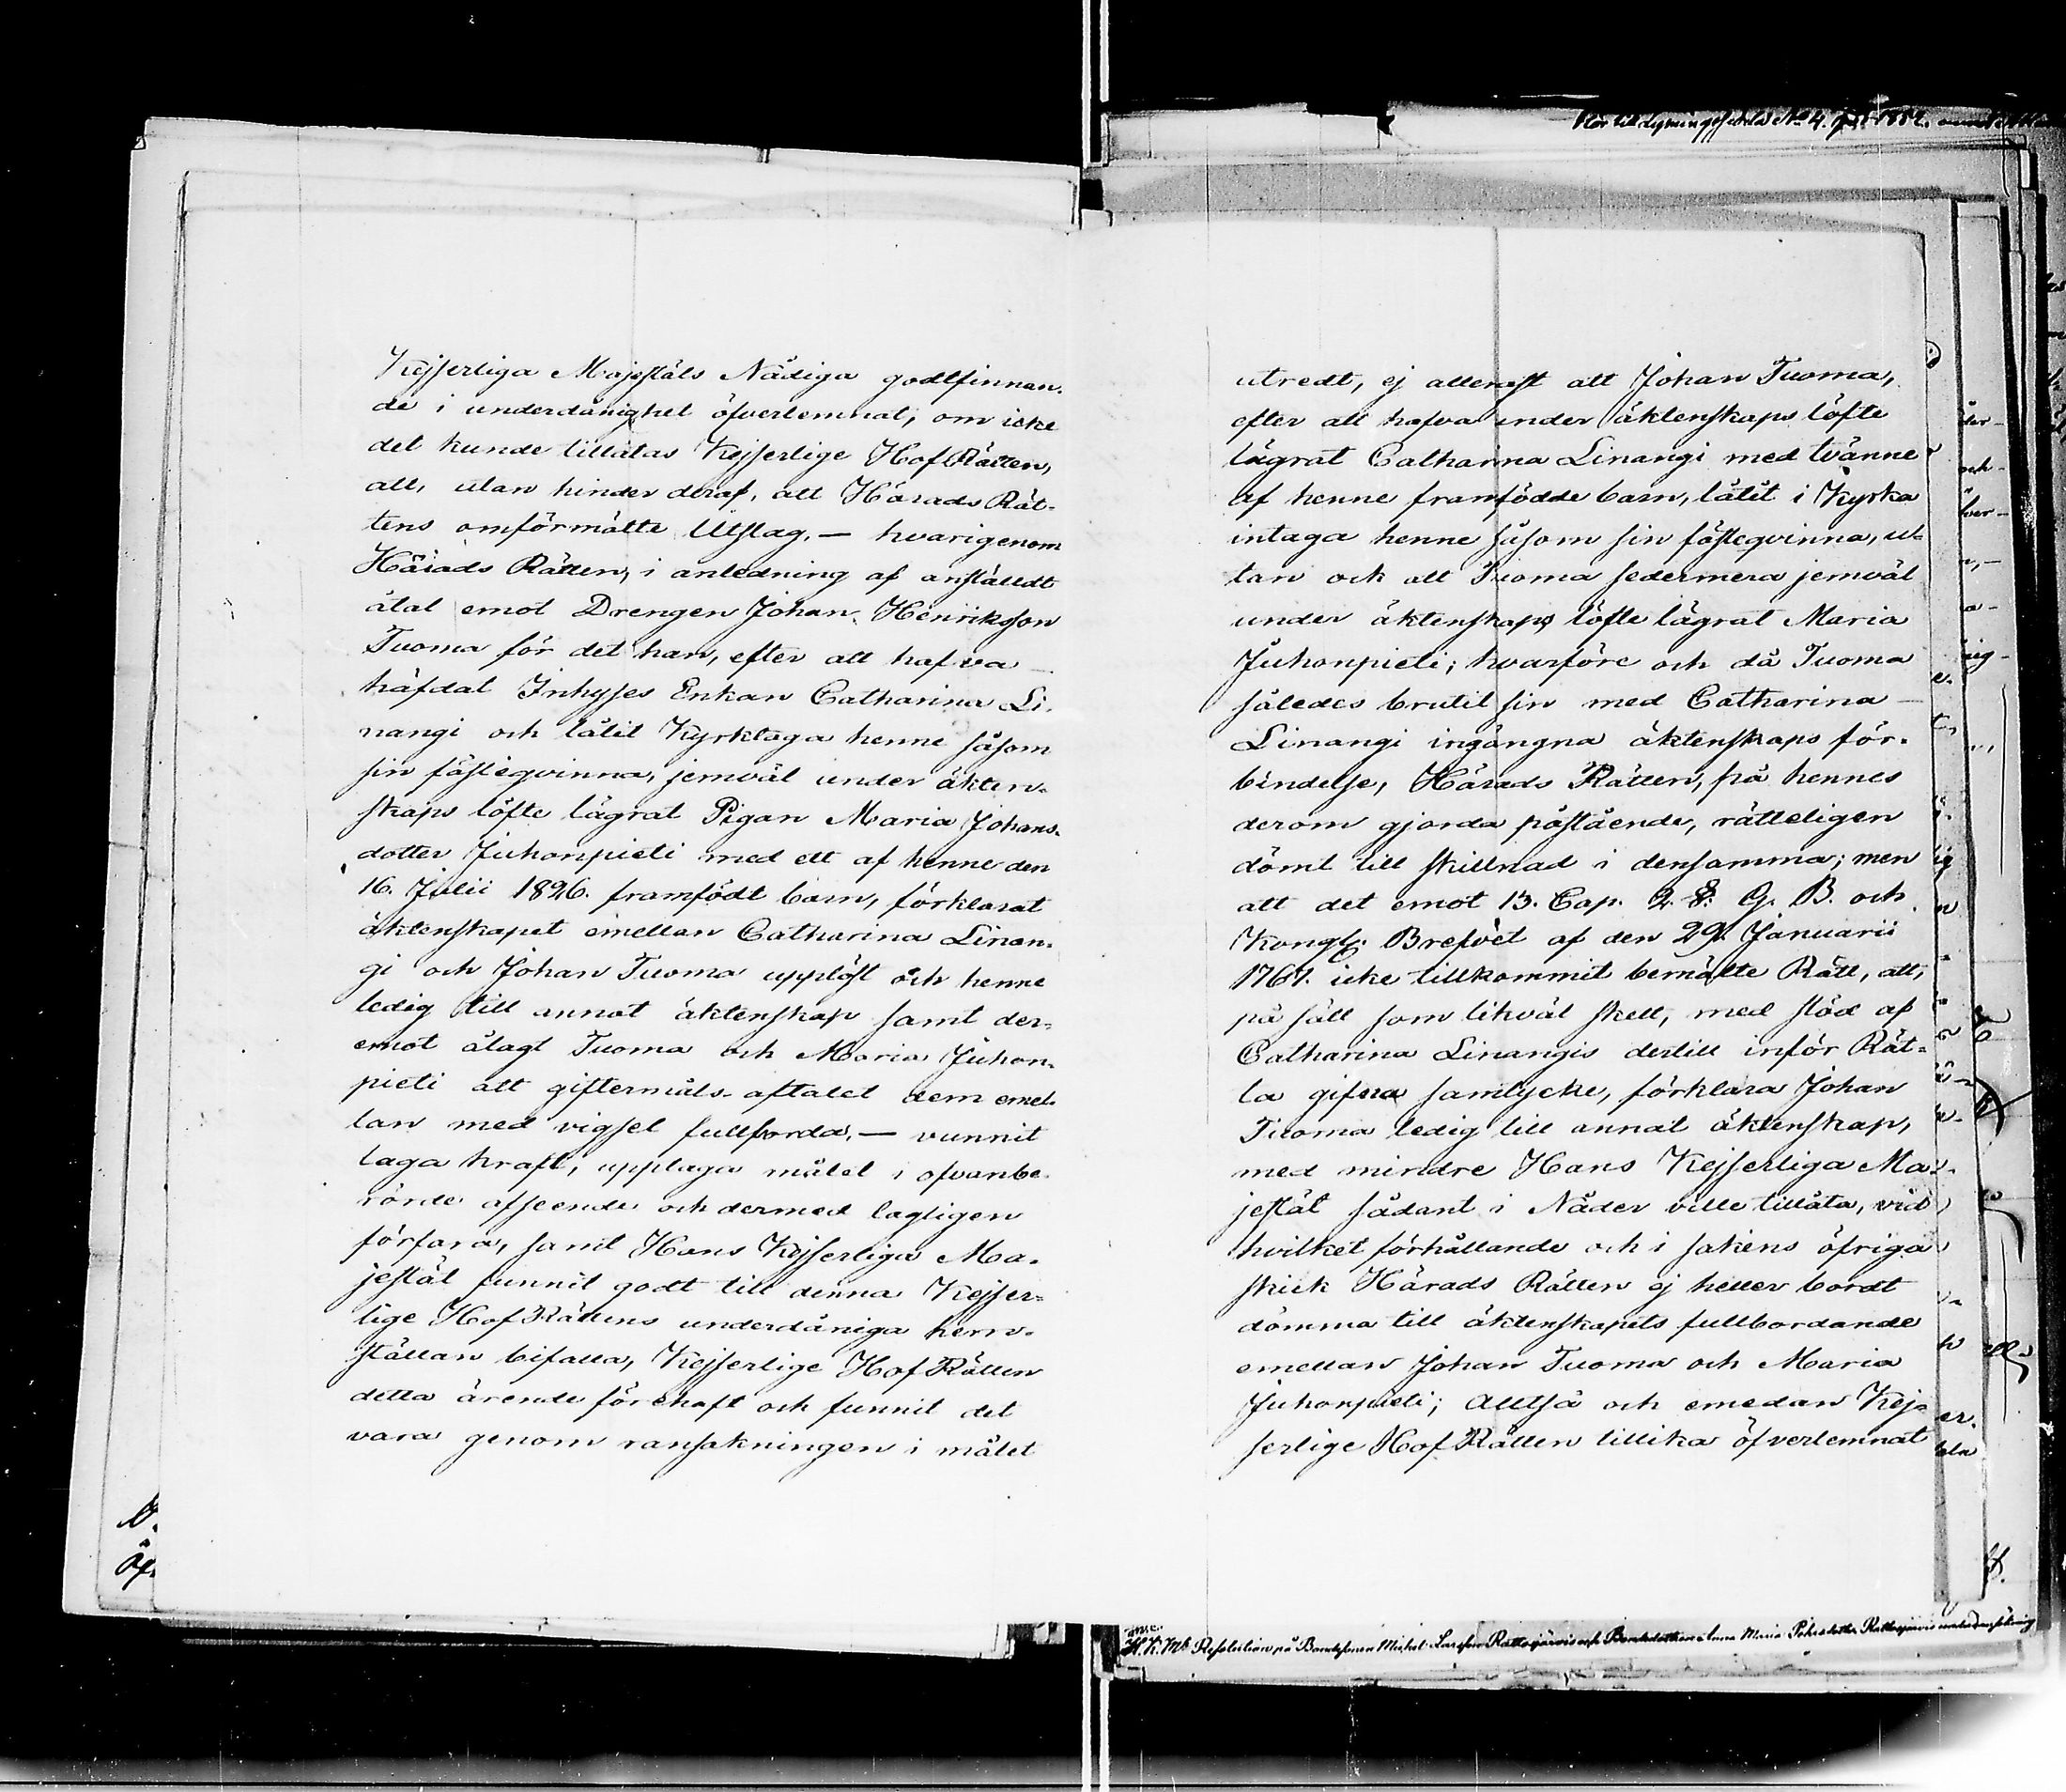 Kejserliga Majestäts Nådiga godtfinnan-
de i underdånighet öfverlemnat, om icke
det kunde tillåtas Kejserlige HofRätten,
att, utan hinder deraf, att Härads Rät-
tens omförmälte Utslag, — hvarigenom
Härads Rätten, i anledning af anstäldt
åtal emot Drengen Johan Henriksson
Tuoma för det han, efter att hafva
häfdat Inhyses Enkan Catharina Li-
nangi och låtit Kyrktaga henne såsom
sin fästeqvinna, jemväl under äkten-
skaps löfte lägrat Pigan Maria Johans-
dotter Juhonpieti med ett af henne den
16. Julii 1826. framfödt barn, förklarat
äktenskapet emellan Catharina Linan-
gi och Johan Tuoma upplöst och henne
ledig till annat äktenskap samt der-
emot ålagt Tuoma och Maria Juhon-
pieti att giftermåls-aftalet dem emel-
lan med vigsel fullborda, — vunnit
laga kraft, upptaga målet i ofvanbe-
rörde afseende och dermed lagligen
förfara, samt Hans Kejserliga Ma-
jestät funnit godt till denna Kejser-
lige HofRättens underdåniga hem-
ställan bifalla, Kejserlige HofRätten
detta ärende förehaft och funnit det
vara genom ransakningen i målet
utredt, ej allenast att Johan Tuoma,
efter att hafva under äktenskaps löfte
lägrat Catharina Linangi med tvänne
af henne framfödde barn, låtit i Kyrka
intaga henne såsom sin fästeqvinna, u-
tan ock att Tuoma sedermera jemväl
under äktenskaps löfte lägrat Maria
Juhonpieti; hvarföre och då Tuoma
således brutit sin med Catharina
Linangi ingångna äktenskaps för-
bindelse, Härads Rätten, på hennes
derom gjorda påstående, rätteligen
dömt till skillnad i densamma; men
att det emot 13. Cap. 2. §. G. B. och
Kongl. Brefvet af den 29. Januarii
1767. icke tillkommit bemälte Rätt, att,
på sätt som likväl skett, med stöd af
Catharina Linangis dertill inför Rät-
ta gifna samtycke, förklara Johan
Tuoma ledig till annat äktenskap,
med mindre Hans Kejserliga Ma-
jestät sådant i Nåder ville tillåta, vid
hvilket förhållande och i sakens öfriga
skick Härads Rätten ej heller bordt
dömma till äktenskapets fullbordande
emellan Johan Tuoma och Maria
Juhonpieti; Alltså och emedan Kej-
serlige HofRätten tillika öfverlemnat
H. K. Mts Resolution på Bondesonen Michel